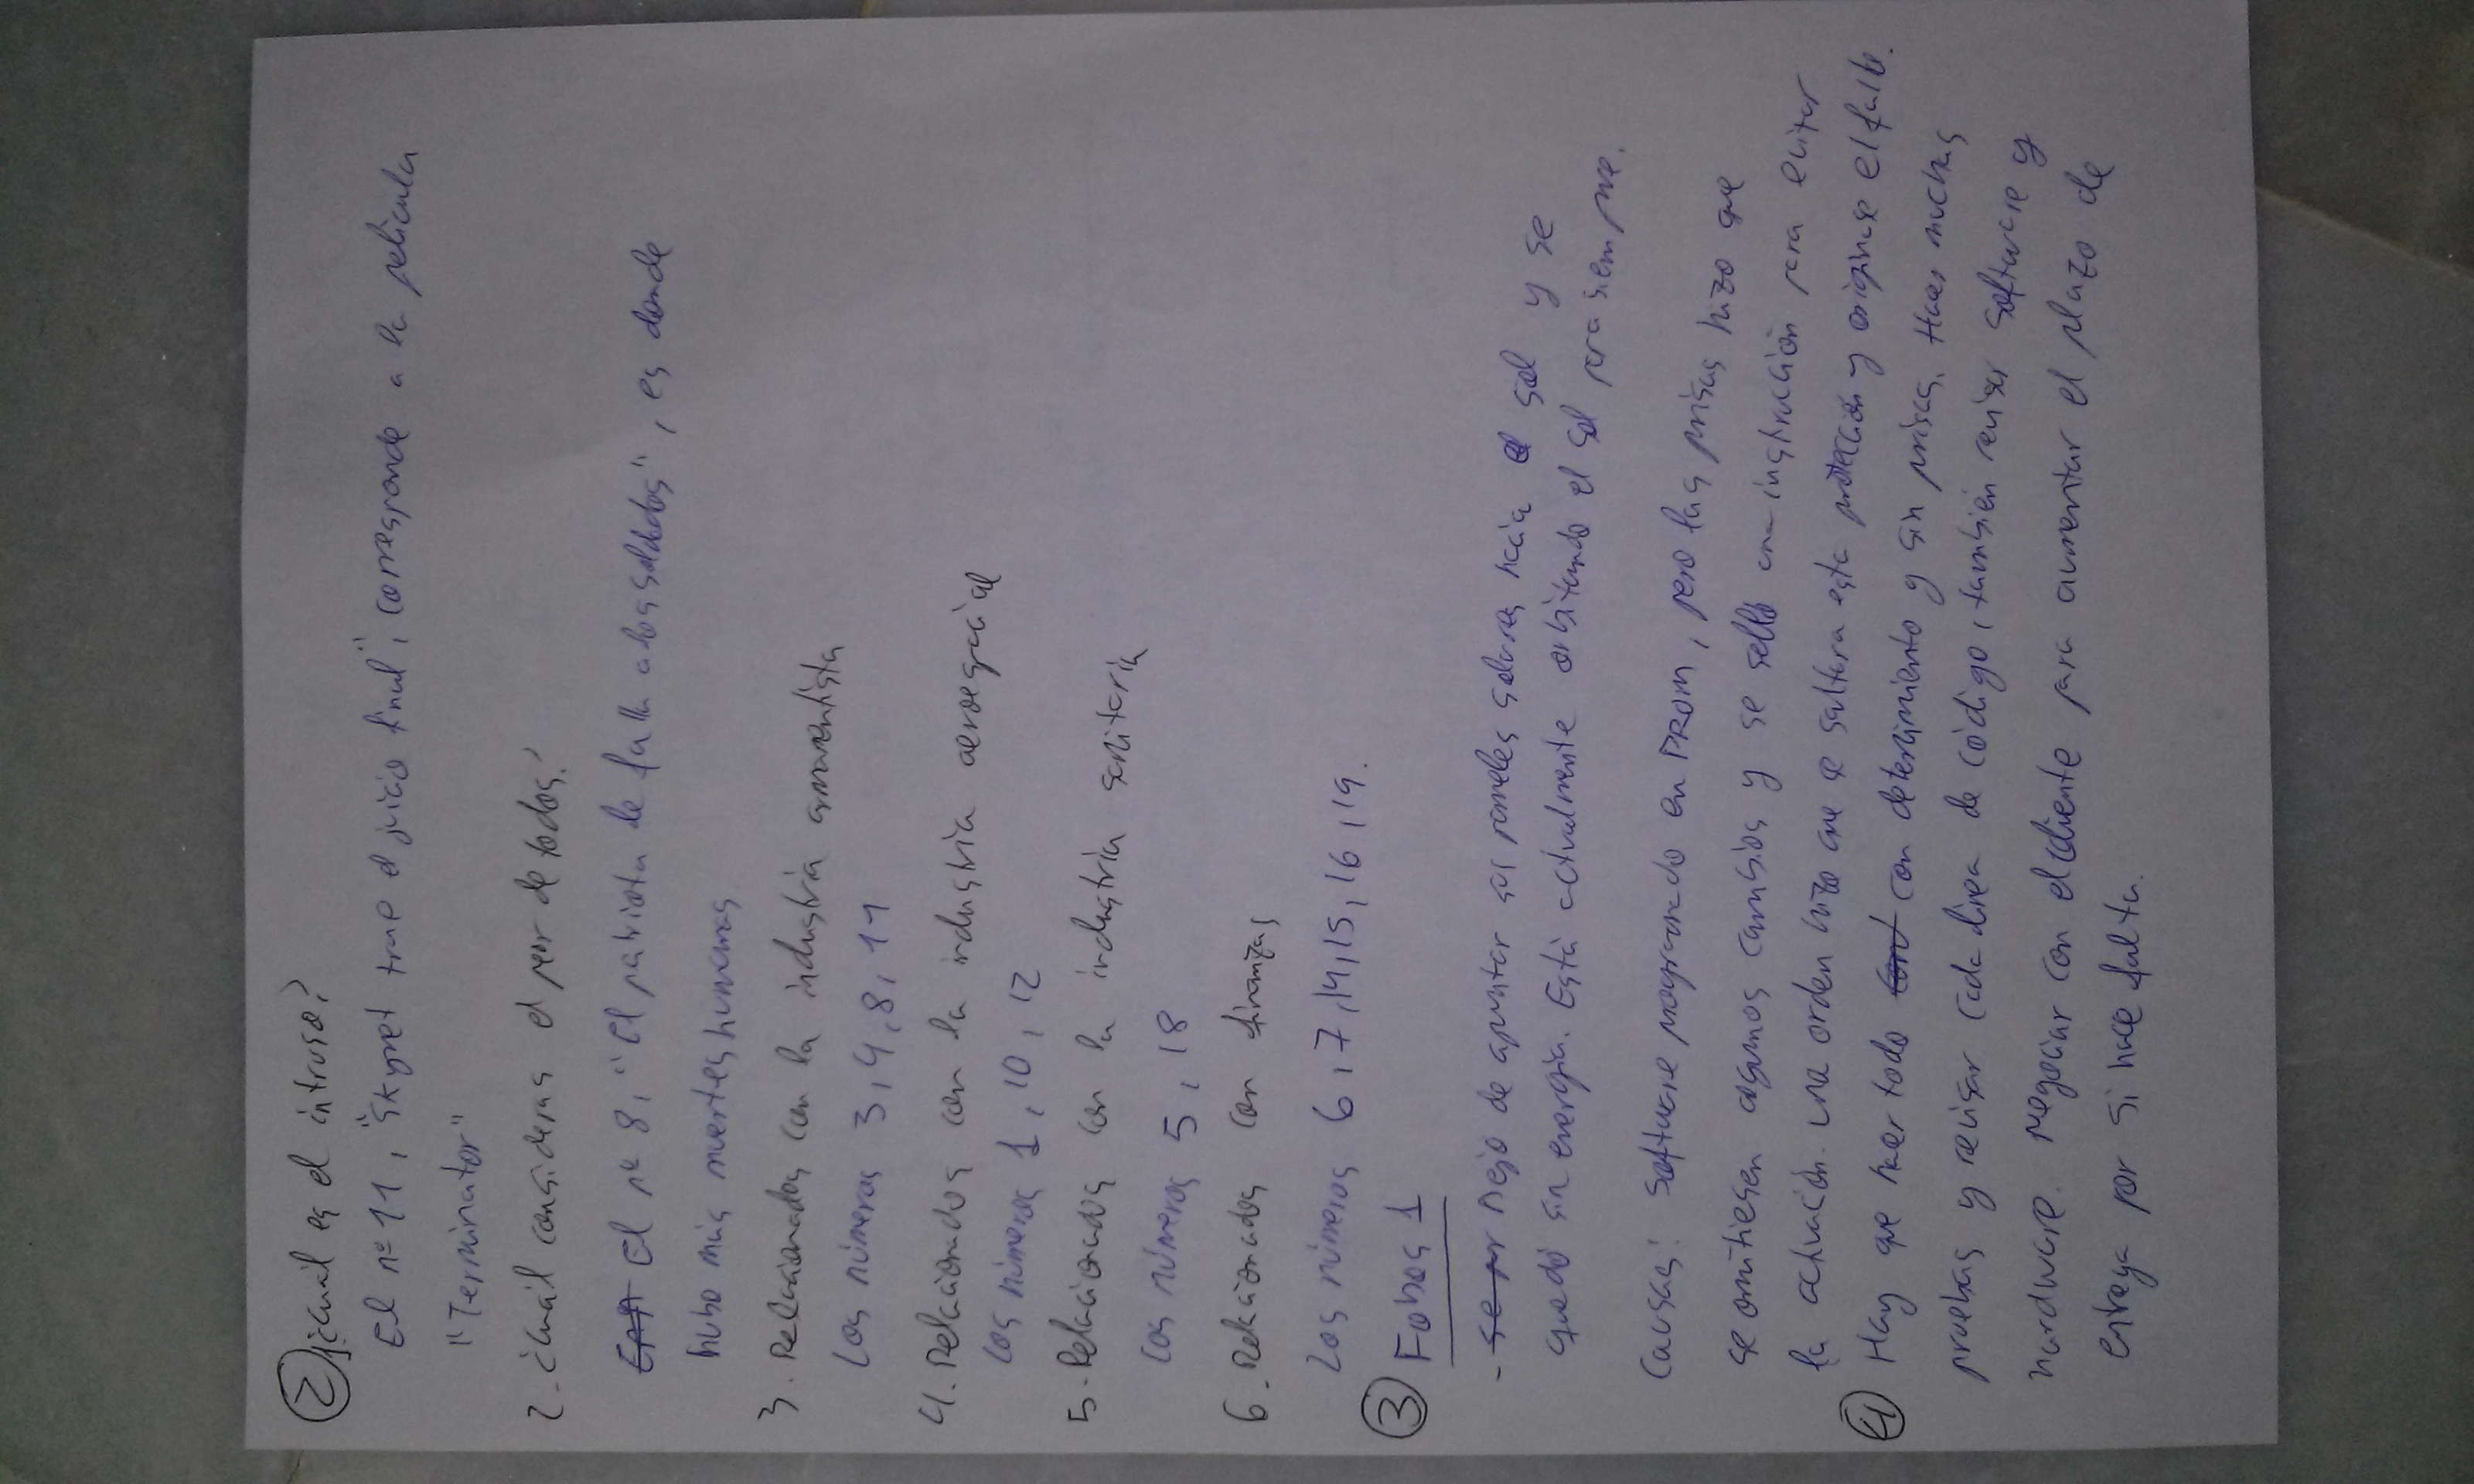 ② 1. ¿Cuál es el intruso?
El nº 11, "Skynet trae el juicio final", corresponde a la película
"Terminator"
2. ¿Cuál consideras el peor de todos?
El nº 8, "El patriota le falla a los soldados", es donde
hubo más muertes humanas
3. Relacionados con la industria armamentista
Los números 3, 4, 8, 11
4. Relacionados con la industria aeroespacial
Los números 1, 10, 12
5. Relacionados con la industria sanitaria
Los números 5, 18
6. Relacionados con finanzas
Los números 6, 7, 14, 15, 16, 19.
③ Fobos 1
- Dejo de apuntar sus paneles solares hacia el sol y se
quedó sin energía. Está actualmente orbitando el sol para siempre.
Causas: Software programado en PROM, pero las prisas hizo que
se omitiesen algunos cambios y se selló una instrucción para evitar
la activación. Una orden hizo que se saltara esta protección y originase el fallo.
④ Hay que hacer todo con detenimiento y sin prisas. Hacer muchas
pruebas y revisar cada línea de código, también revisar software y
hardware. Negociar con el cliente para aumentar el plazo de
entrega por si hace falta.